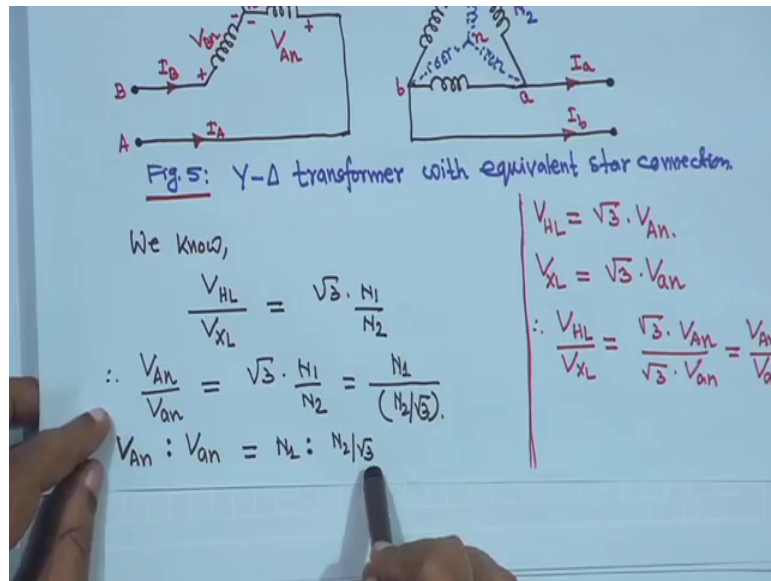 V_Bn
V_An
N_2
n
B
I_B
b
a
I_a
A
I_A
I_b
Fig. 5: Y-Δ transformer with equivalent star connection.
We know,
V_HL / V_XL = √3 · N_1 / N_2
∴ V_An / V_an = √3 · N_1 / N_2 = N_1 / (N_2/√3).
V_An : V_an = N_1 : N_2/√3
V_HL = √3 · V_An.
V_XL = √3 · V_an
∴ V_HL / V_XL = √3 · V_An / √3 · V_an =